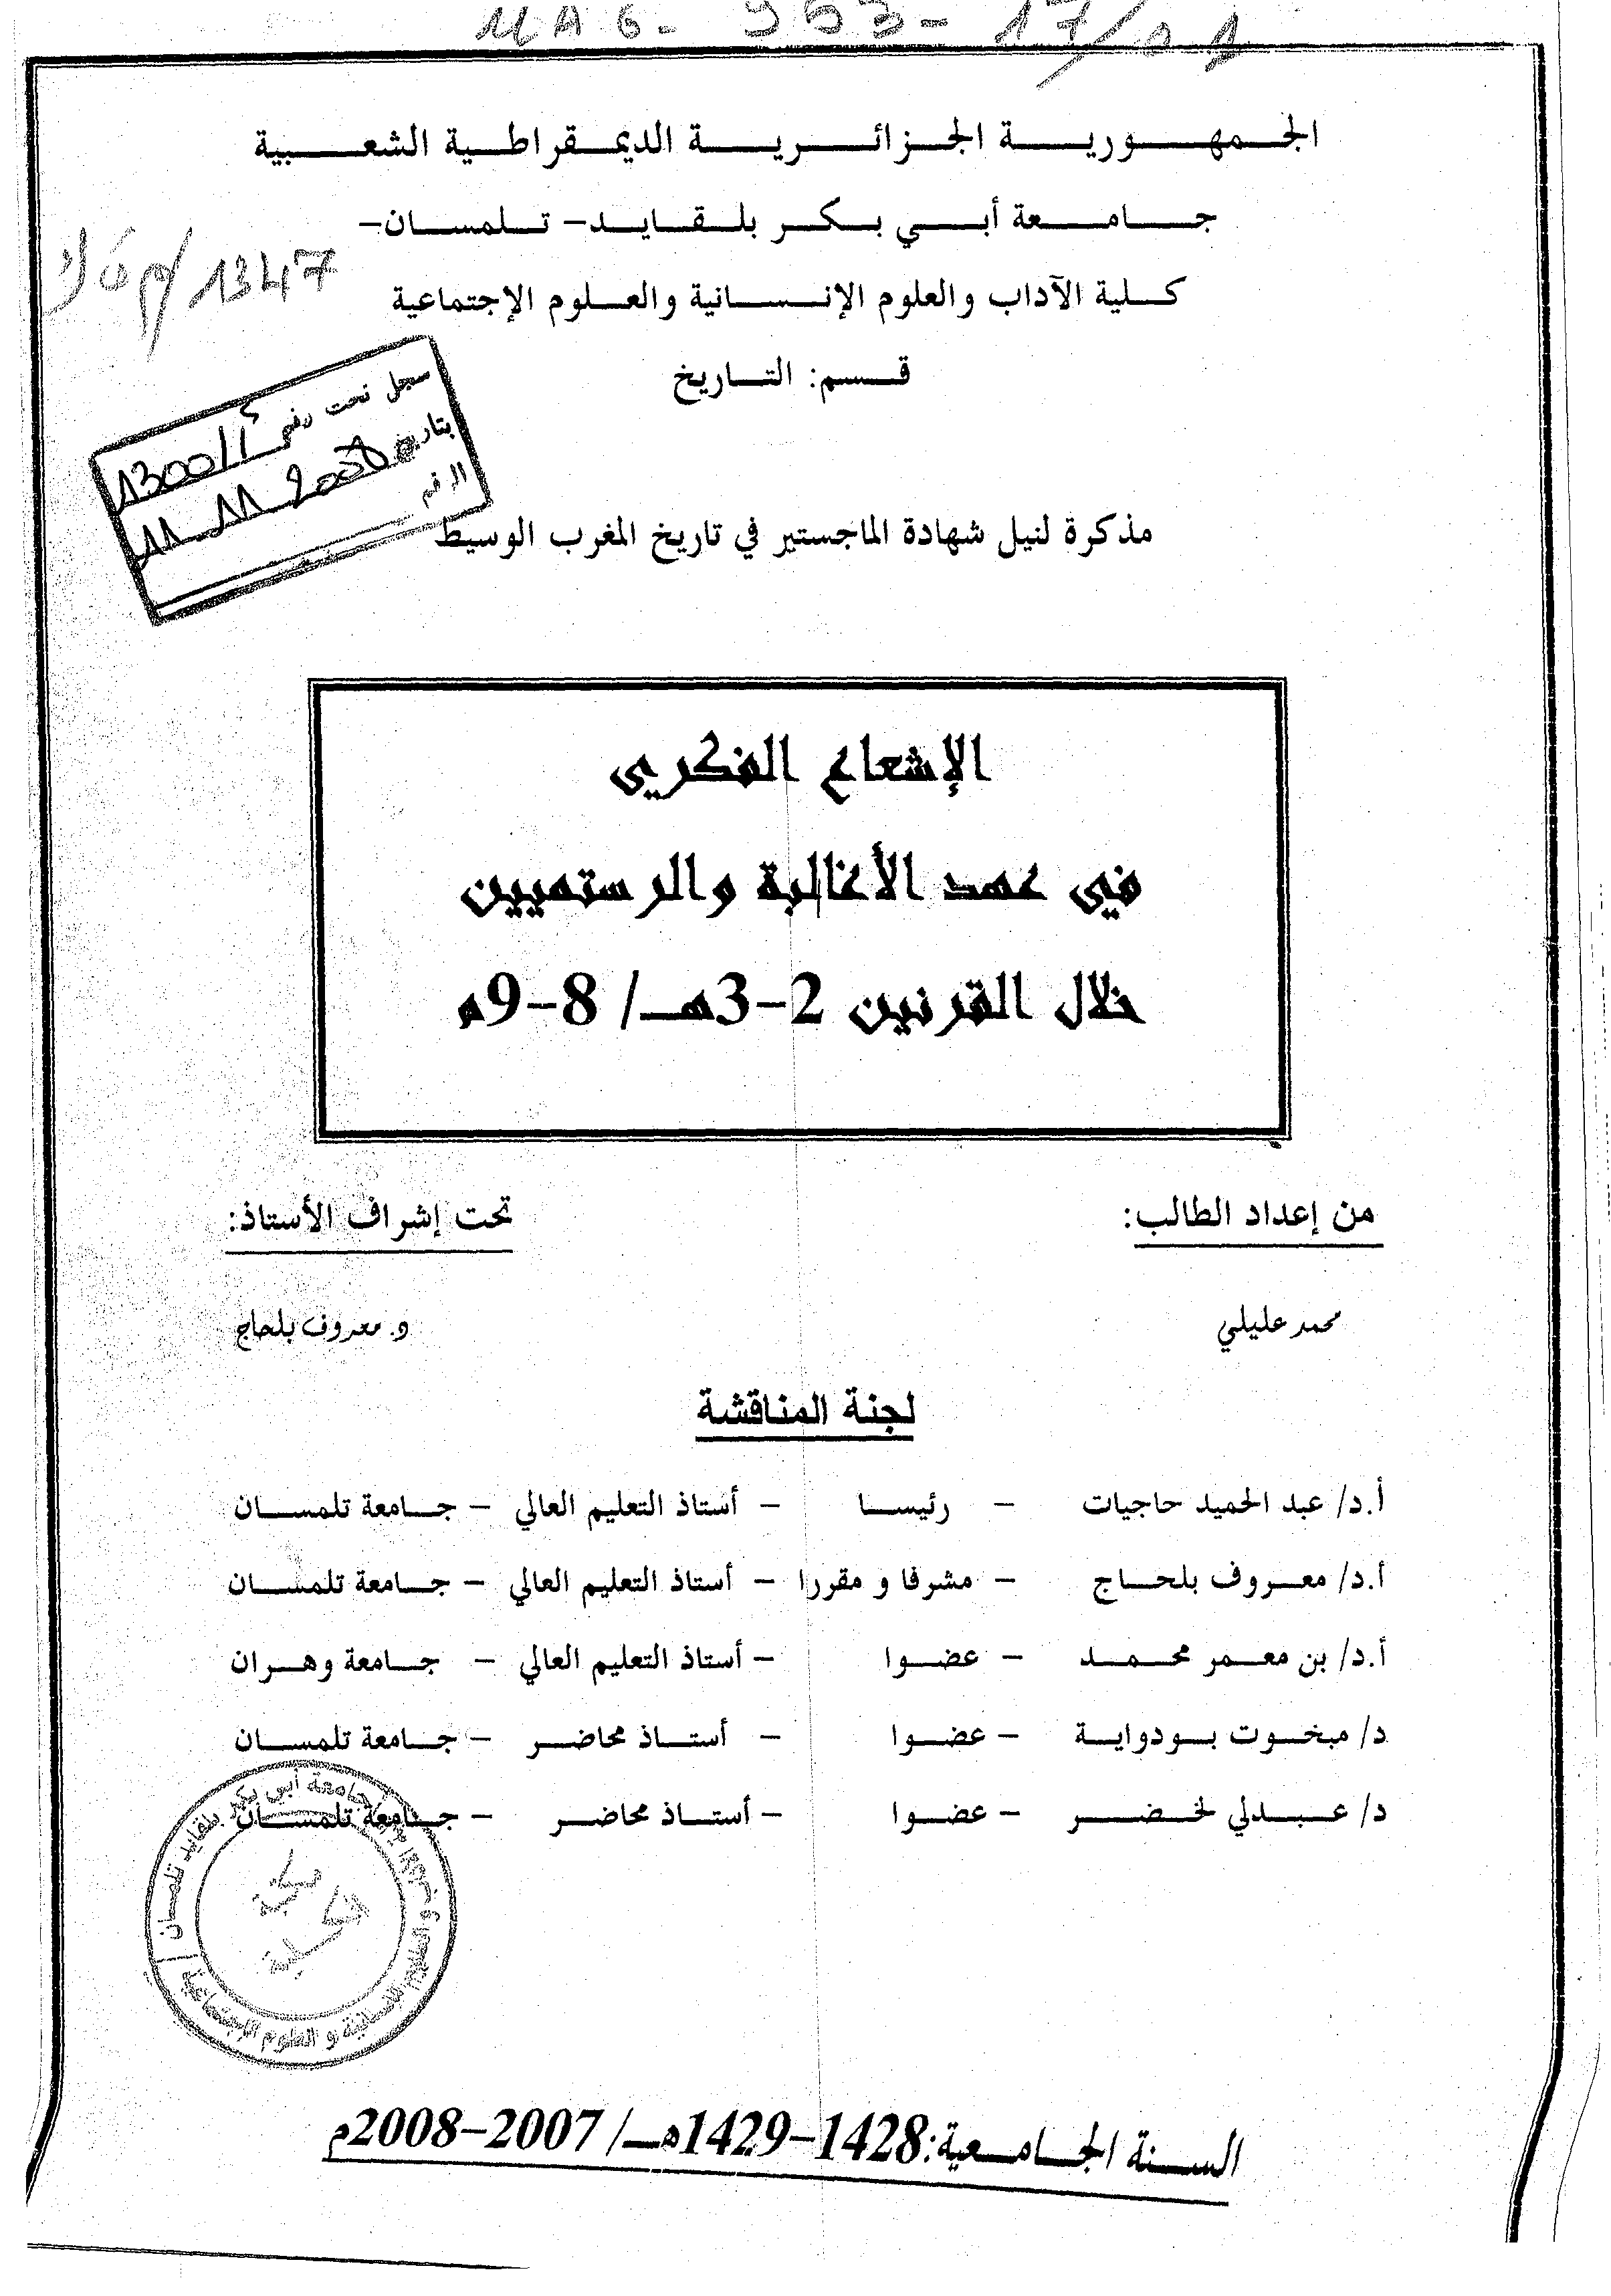 MAG - 953 - 17/01
الجمهورية الجزائرية الديمقراطية الشعبية
جامعة أبي بكر بلقايد- تلمسان-
كلية الآداب والعلوم الإنسانية والعلوم الإجتماعية
1347
قسم: التاريخ
سجل تحت رقم 1300
بتاريخ 11 11 2008
الرقم
مذكرة لنيل شهادة الماجستير في تاريخ المغرب الوسيط
الإشعاع الفكري
في عهد الأغالبة والرستميين
خلال القرنين 2-3هـ/ 8-9م
من إعداد الطالب: تحت إشراف الأستاذ:
محمد عليلي د. معروف بلحاج
لجنة المناقشة
أ.د/ عبد الحميد حاجيات - رئيسا - أستاذ التعليم العالي - جامعة تلمسان
أ.د/ معروف بلحاج - مشرفا و مقررا - أستاذ التعليم العالي - جامعة تلمسان
أ.د/ بن معمر محمد - عضوا - أستاذ التعليم العالي - جامعة وهران
د/ مبخوت بودواية - عضوا - أستاذ محاضر - جامعة تلمسان
د/ عبدلي لخضر - عضوا - أستاذ محاضر - جامعة تلمسان
جامعة أبي بكر بلقايد تلمسان
الإنسانية و العلوم الإجتماعية
السنة الجامعية:1428-1429هـ/ 2007-2008م